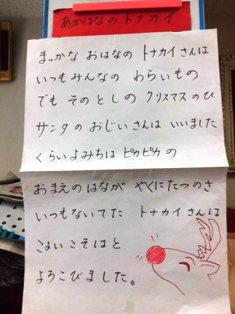 あかはなのトナカイ
まっかな おはなの トナカイさんは
いつもみんなの わらいもの
でも そのとしの クリスマスのひ
サンタの おじいさんは いいました
くらいよみちは ピカピカの
おまえのはなが やくにたつのさ
いつもないてた トナカイさんは
こよいこそはと
よろこびました。